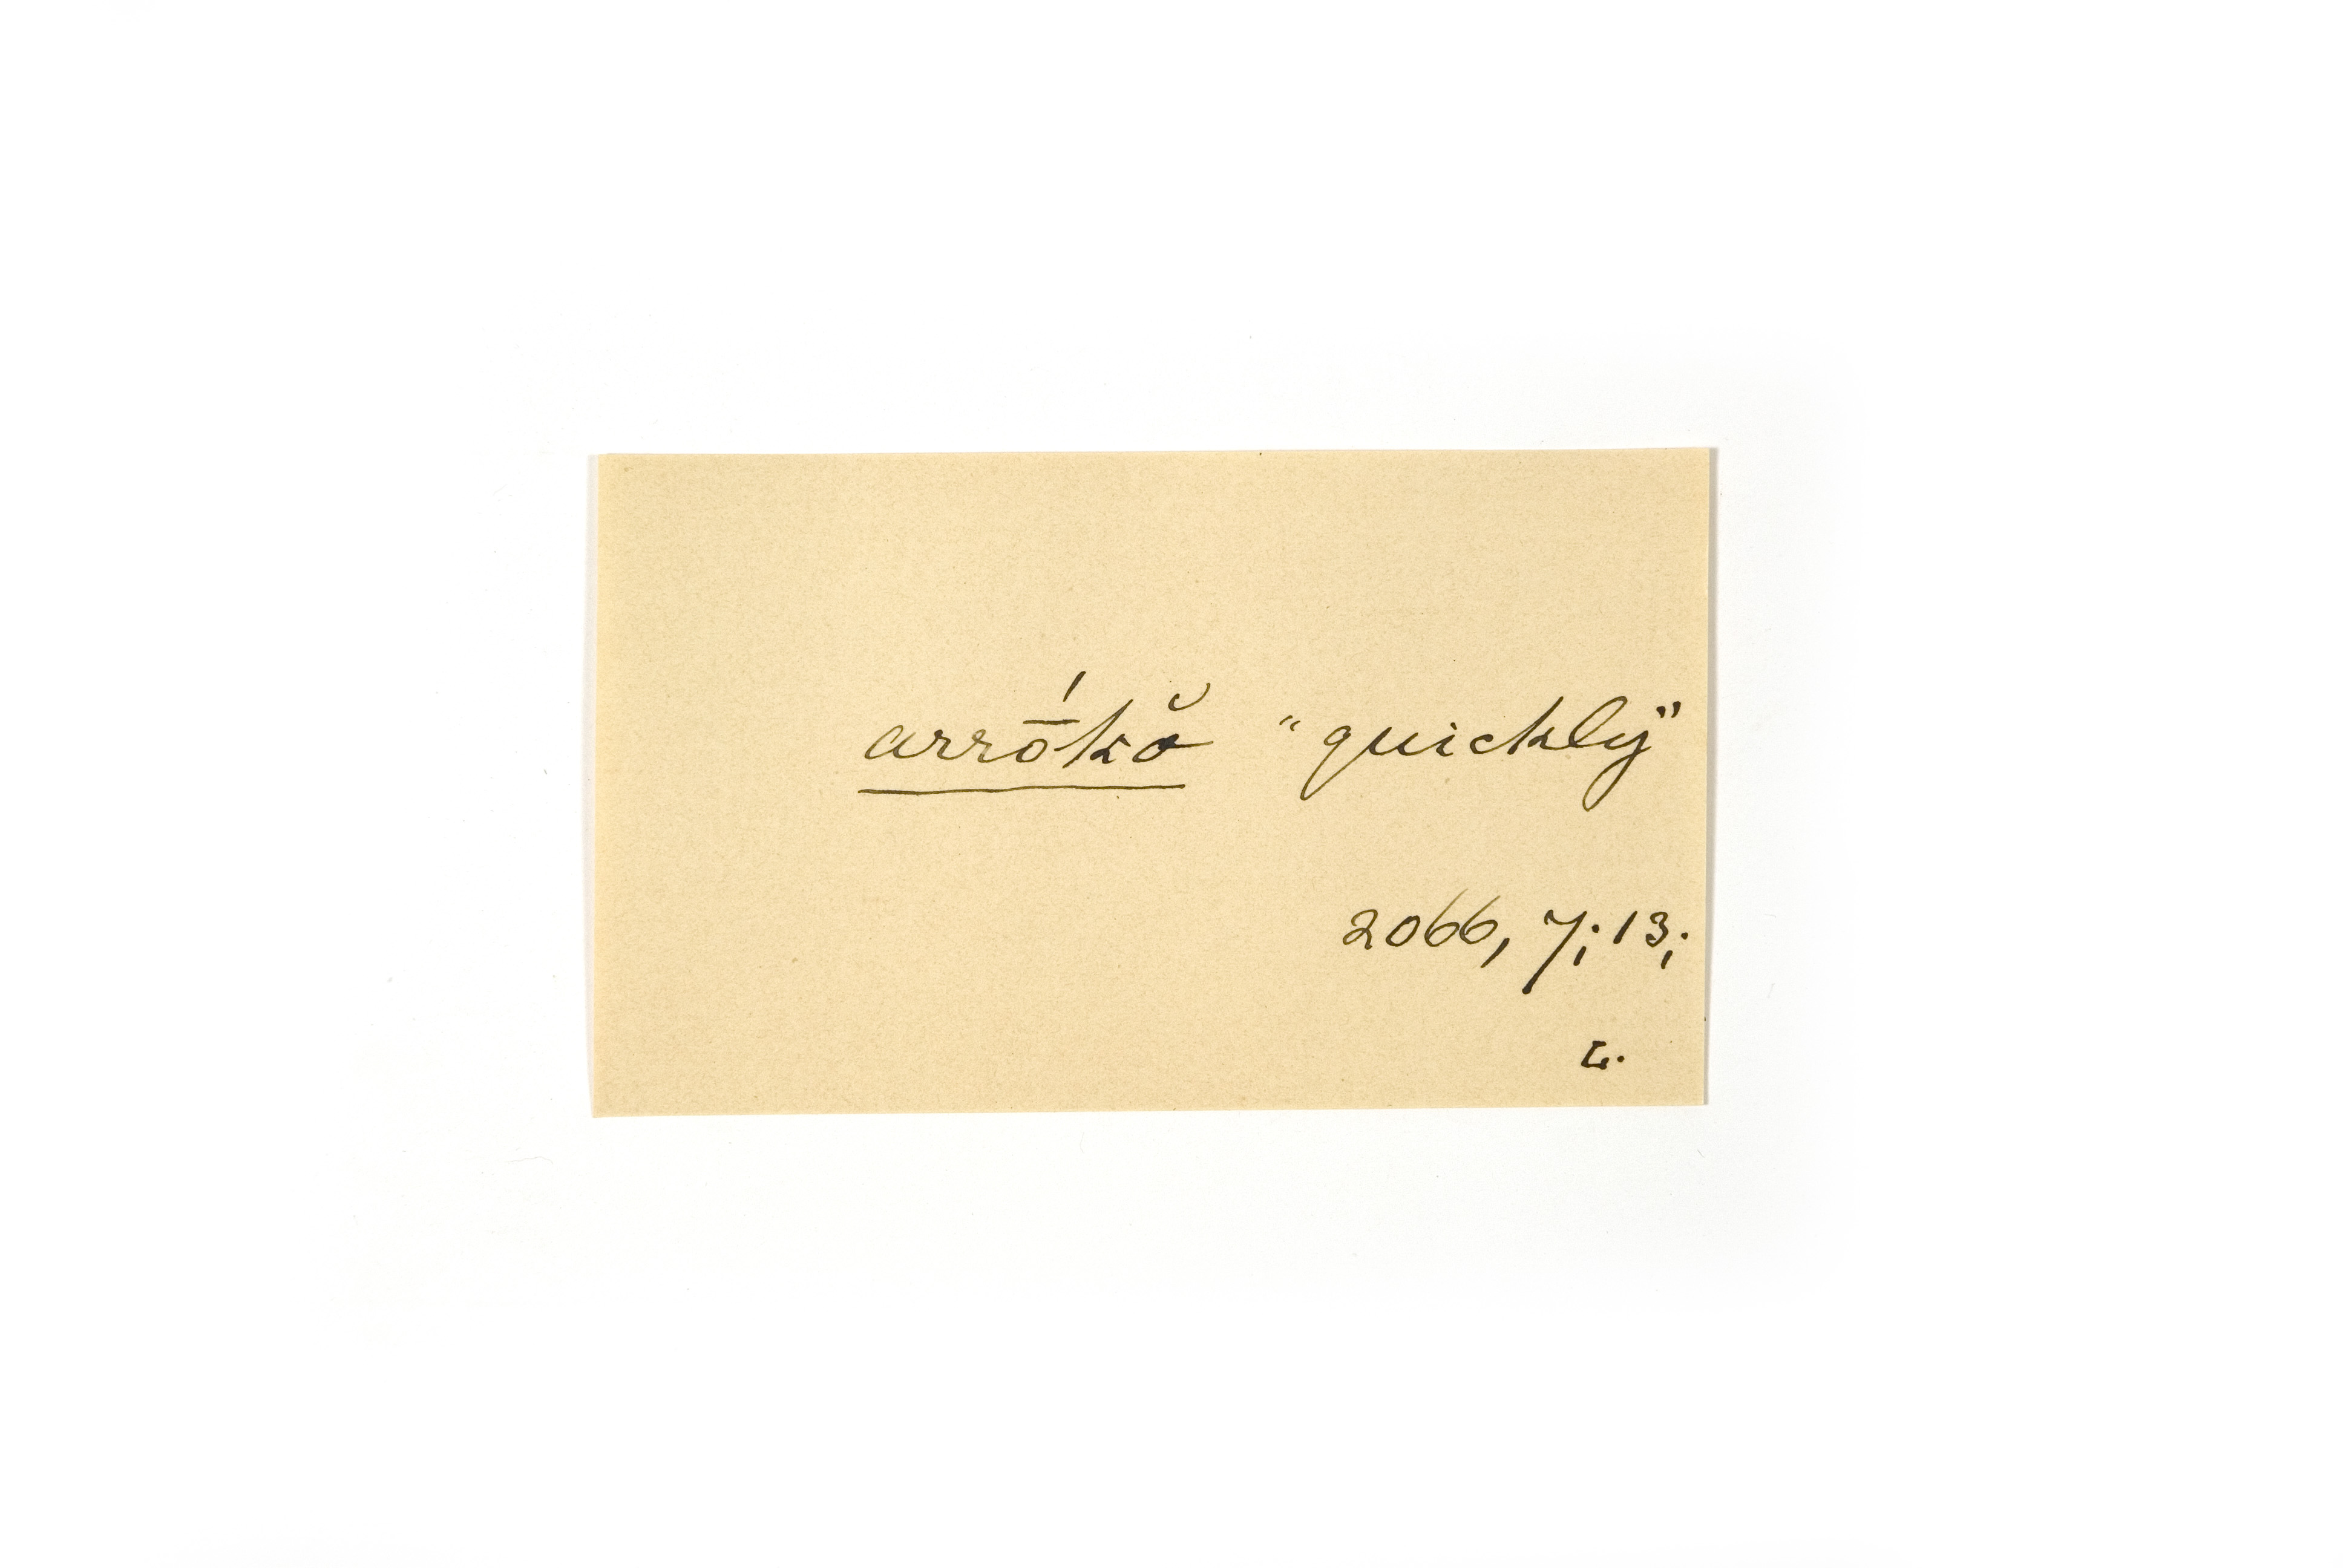 arrṓkŏ "quickly"
2066, 7; 13;
L.